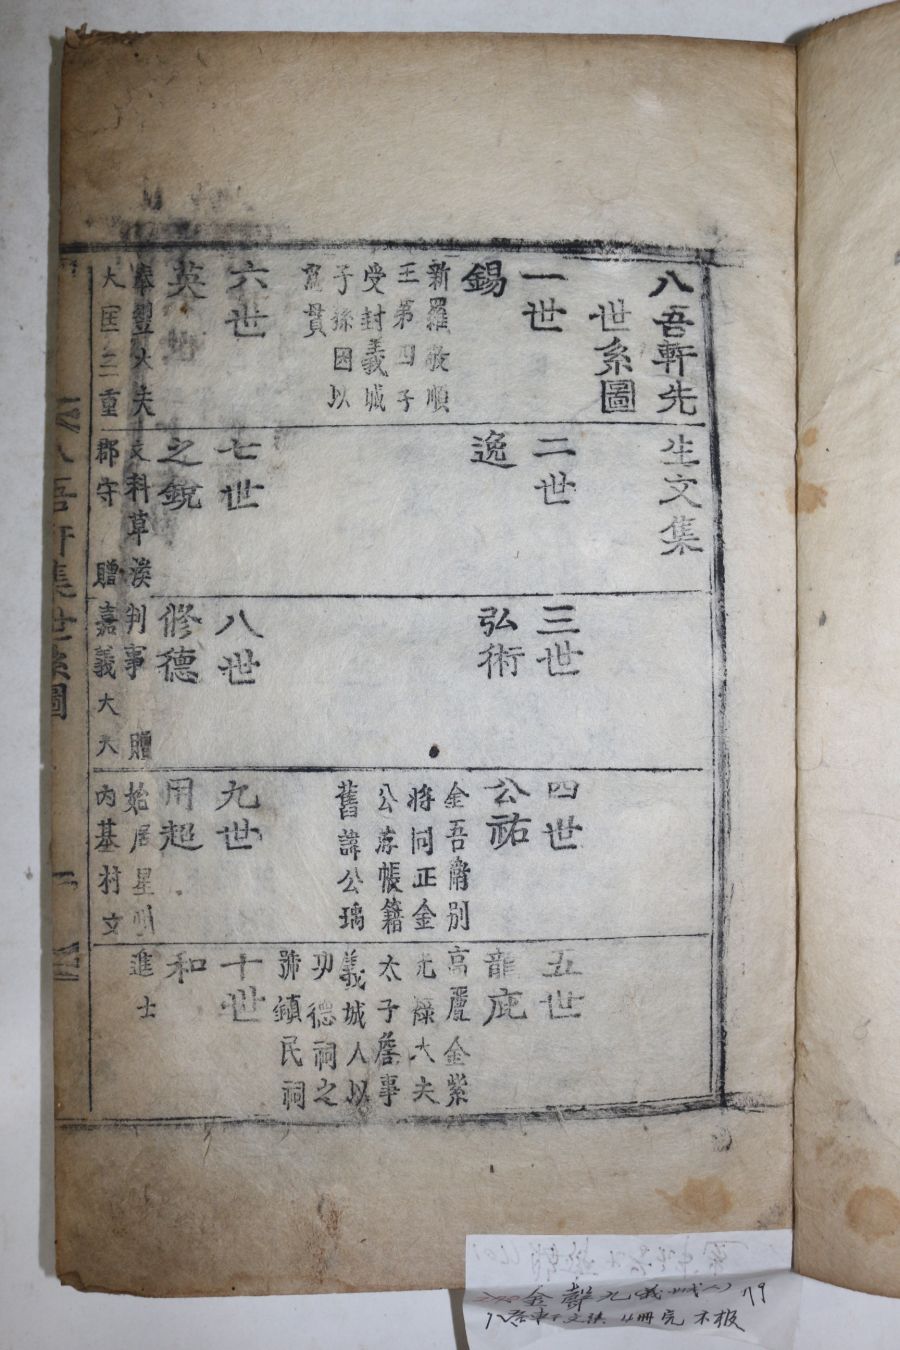 八吾軒先生文集
世系圖
一世
錫
新羅敬順
王第四子
受封義城
子孫因以
爲貫
二世
逸
三世
弘術
四世
公祐
金吾衛別
將同正金
公荐帳籍
舊諱公瑀
五世
龍庇
高麗金紫
光祿大夫
太子詹事
義城人以
功德祠之
號鎭民祠
六世
英
奉翊大夫
大匡三重
七世
之銳
文科草溪
郡守 贈
八世
修德
判事 贈
嘉義大夫
九世
用超
始居星州
內基村文
十世
和
進士
八吾軒集世系圖
一
金聲九 義城人 79
八吾軒文集 4冊完 木板